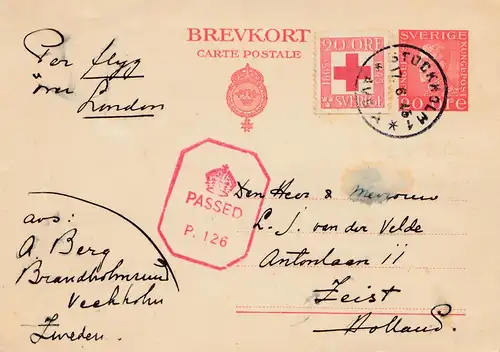 BREVKORT
CARTE POSTALE
Per flyg
över
London
20 ÖRE
1865
SVERIGE
SVERIGE
KUNGSPOST
ÖRE
STOCKHOLM 1
17. 6.
PASSED
P. 126
Den Heer & Mevrouw
L. J. van der Velde
Antonlaan 11
Zeist
Holland.
avs:
A. Berg
Zweden.